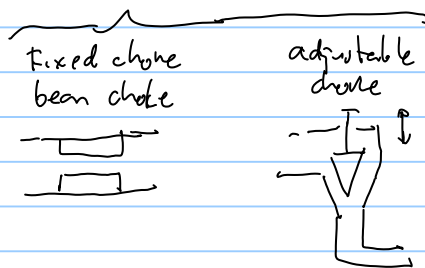 Fixed choke
bean choke
adjustable
choke